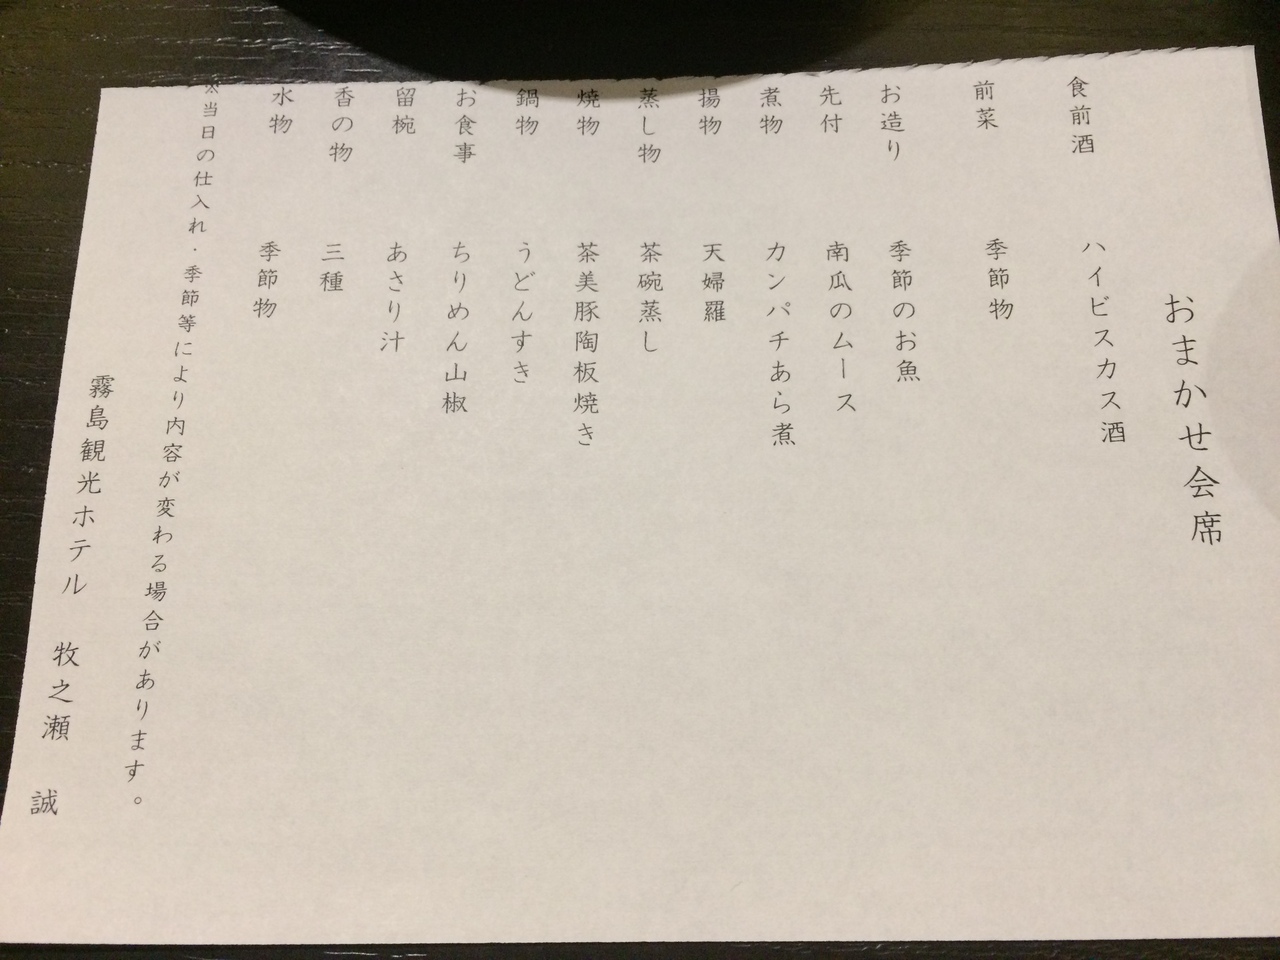 おまかせ会席
食前酒 ハイビスカス酒
前菜 季節物
お造り 季節のお魚
先付 南瓜のムース
煮物 カンパチあら煮
揚物 天婦羅
蒸し物 茶碗蒸し
焼物 茶美豚陶板焼き
鍋物 うどんすき
お食事 ちりめん山椒
留椀 あさり汁
香の物 三種
水物 季節物
※当日の仕入れ・季節等により内容が変わる場合があります。
霧島観光ホテル 牧之瀬 誠